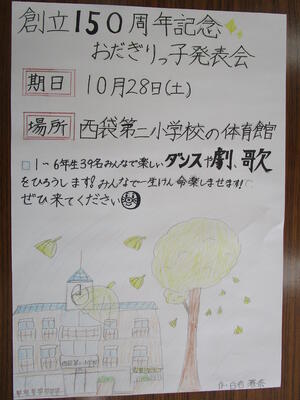 創立150周年記念
おだぎりっ子発表会
期日 10月28日(土)
場所 西袋第二小学校の体育館
1～6年生39名みんなで楽しいダンスや劇、歌
をひろうします!みんなで一生けん命楽しませます!
ぜひ来てください